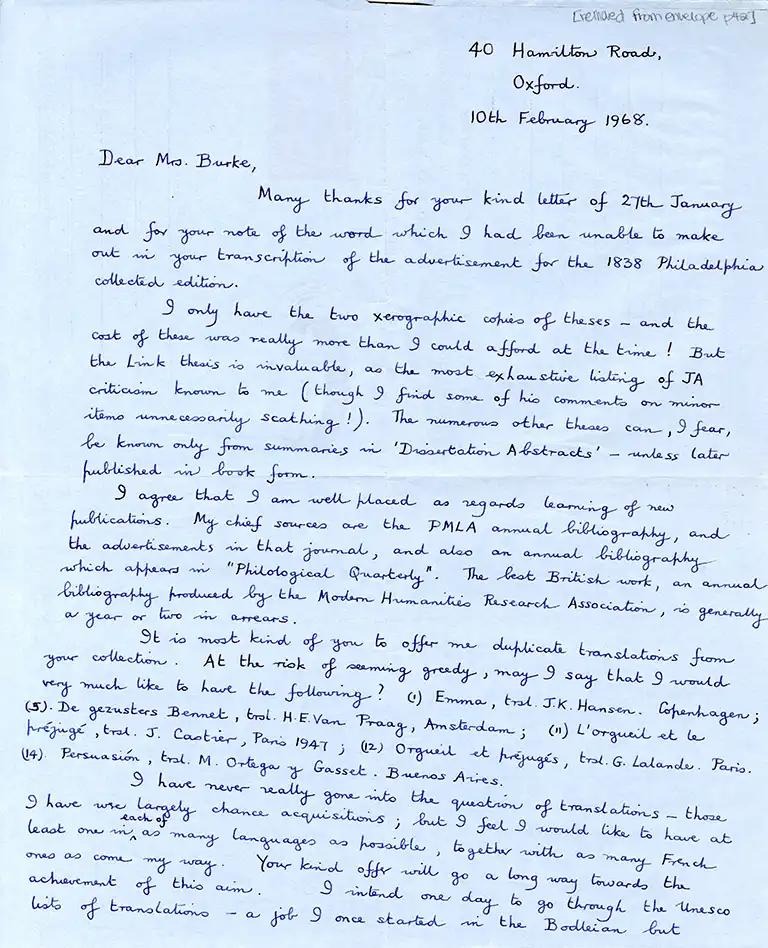 [removed from envelope p42]
40 Hamilton Road,
Oxford.
10th February 1968.
Dear Mrs. Burke,
Many thanks for your kind letter of 27th January
and for your note of the word which I had been unable to make
out in your transcription of the advertisement for the 1838 Philadelphia
collected edition.
I only have the two xerographic copies of theses – and the
cost of these was really more than I could afford at the time! But
the Link thesis is invaluable, as the most exhaustive listing of JA
criticism known to me (though I find some of his comments on minor
items unnecessarily scathing!). The numerous other theses can, I fear,
be known only from summaries in 'Dissertation Abstracts' – unless later
published in book form.
I agree that I am well placed as regards learning of new
publications. My chief sources are the PMLA annual bibliography, and
the advertisements in that journal, and also an annual bibliography
which appears in "Philological Quarterly". The best British work, an annual
bibliography produced by the Modern Humanities Research Association, is generally
a year or two in arrears.
It is most kind of you to offer me duplicate translations from
your collection. At the risk of seeming greedy, may I say that I would
very much like to have the following? (1) Emma, trsl. J.K. Hansen. Copenhagen;
(5). De gezusters Bennet, trsl. H.E. Van Praag, Amsterdam; (11) L'orgueil et le
préjugé, trsl. J. Castier, Paris 1947; (12) Orgueil et préjugés, trsl. G. Lalande. Paris.
(14). Persuasión, trsl. M. Ortega y Gasset. Buenos Aires.
I have never really gone into the question of translations – those
I have were largely chance acquisitions; but I feel I would like to have at
least one in each of as many languages as possible, together with as many French
ones as come my way. Your kind offer will go a long way towards the
achievement of this aim. I intend one day to go through the Unesco
lists of translations – a job I once started in the Bodleian but